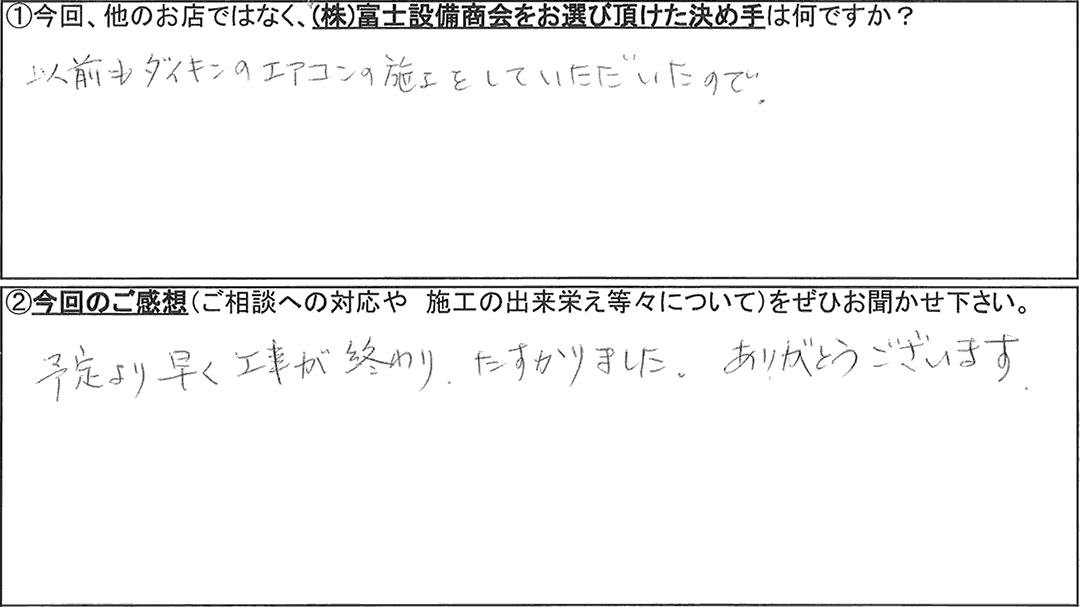 ①今回、他のお店ではなく、(株)富士設備商会をお選び頂けた決め手は何ですか？
以前もダイキンのエアコンの施工をしていただいたので.
②今回のご感想(ご相談への対応や 施工の出来栄え等々について)をぜひお聞かせ下さい。
予定より早く工事が終わり、たすかりました。ありがとうございます.